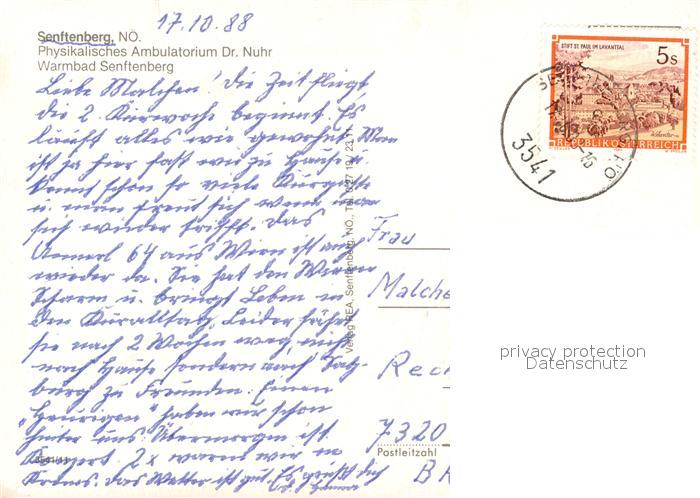 17.10.88
Senftenberg, NÖ.
Physikalisches Ambulatorium Dr. Nuhr
Warmbad Senftenberg
Liebe Malchen! Die Zeit fliegt
die 2. Kurwoche beginnt. Es
läuft alles wie gewohnt. Man
ist ja hier fast wie zu Hause u.
kennt schon so viele Kurgäste
u. man freut sich wenn man
sich wieder trifft. Das
64 aus Wien ist auch
wieder da. Sie hat den Wiener
Scharm u. bringt Leben in
den Kuralltag. Leider fährt
sie nach 2 Wochen weg, nicht
nach Hause sondern nach Salz-
burg zu Freunden. Einen
"Heurigen" haben wir schon
hinter uns. Übermorgen ist
Konzert. 2x waren wir in
Krems. Das Wetter ist gut. Es grüßt dich
Verlag REA, Senftenberg, NÖ., Tel. 0 27 19 / 23 11
Frau
Malche
Re
7320
Postleitzahl
STIFT ST. PAUL IM LAVANTTAL
5 s
REPUBLIK ÖSTERREICH
3541
N.Ö.
privacy protection
Datenschutz